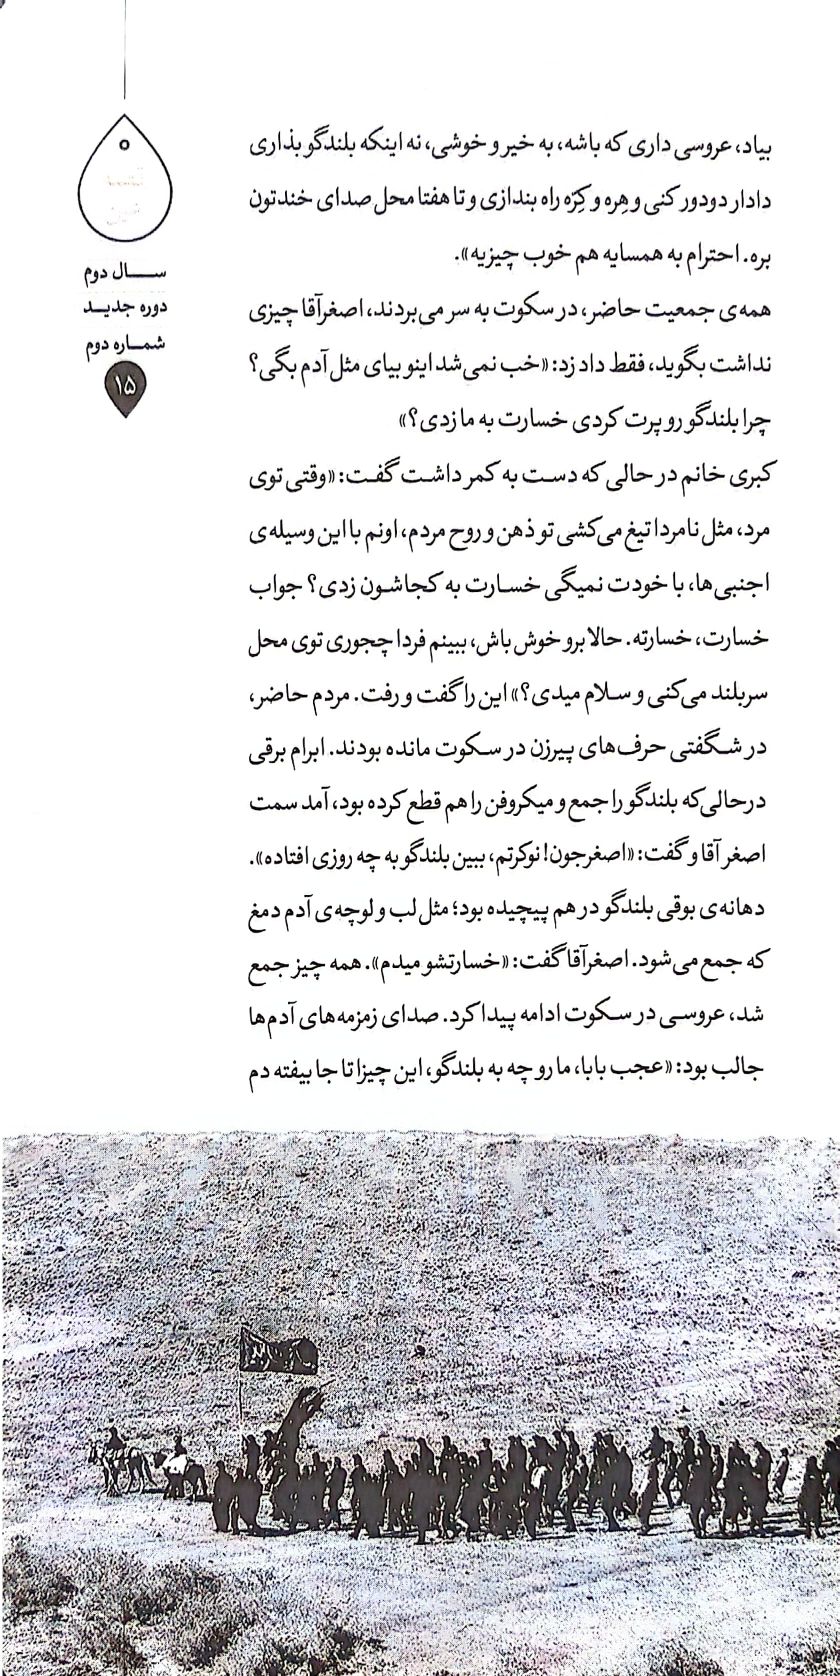 بیاد، عروسی داری که باشه، به خیر و خوشی، نه اینکه بلندگو بذاری
دادار دودور کنی و هِره و کِرّه راه بندازی و تا هفتا محل صدای خندتون
بره. احترام به همسایه هم خوب چیزیه».
همه‌ی جمعیت حاضر، در سکوت به سر می‌بردند، اصغرآقا چیزی
نداشت بگوید، فقط داد زد: «خب نمی‌شد اینو بیای مثل آدم بگی؟
چرا بلندگو رو پرت کردی خسارت به ما زدی؟»
کبری خانم در حالی که دست به کمر داشت گفت: «وقتی توی
مرد، مثل نامردا تیغ می‌کشی تو ذهن و روح مردم، اونم با این وسیله‌ی
اجنبی‌ها، با خودت نمیگی خسارت به کجاشون زدی؟ جواب
خسارت، خسارته. حالا برو خوش باش، ببینم فردا چجوری توی محل
سربلند می‌کنی و سلام میدی؟» این را گفت و رفت. مردم حاضر،
در شگفتی حرف‌های پیرزن در سکوت مانده بودند. ابرام برقی
درحالی‌که بلندگو را جمع و میکروفن را هم قطع کرده بود، آمد سمت
اصغر آقا و گفت: «اصغرجون! نوکرتم، ببین بلندگو به چه روزی افتاده».
دهانه‌ی بوقی بلندگو در هم پیچیده بود؛ مثل لب و لوچه‌ی آدم دمغ
که جمع می‌شود. اصغرآقا گفت: «خسارتشو میدم». همه چیز جمع
شد، عروسی در سکوت ادامه پیدا کرد. صدای زمزمه‌های آدم‌ها
جالب بود: «عجب بابا، ما رو چه به بلندگو، این چیزا تا جا بیفته دم
سال دوم
دوره جدید
شماره دوم
۱۵